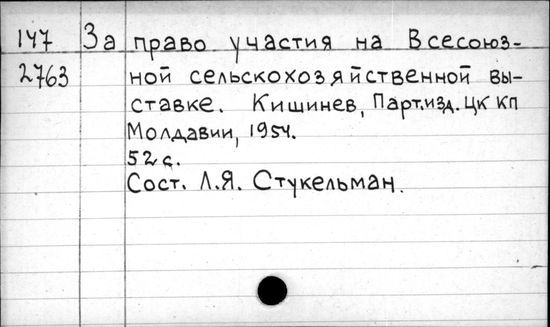 147 За право участия на Всесоюз-
2763 ной сельскохозяйственной вы-
ставке. Кишинев, Парт.изд. ЦК КП
Молдавии, 1954.
52 с.
Сост. Л.Я. Стукельман.